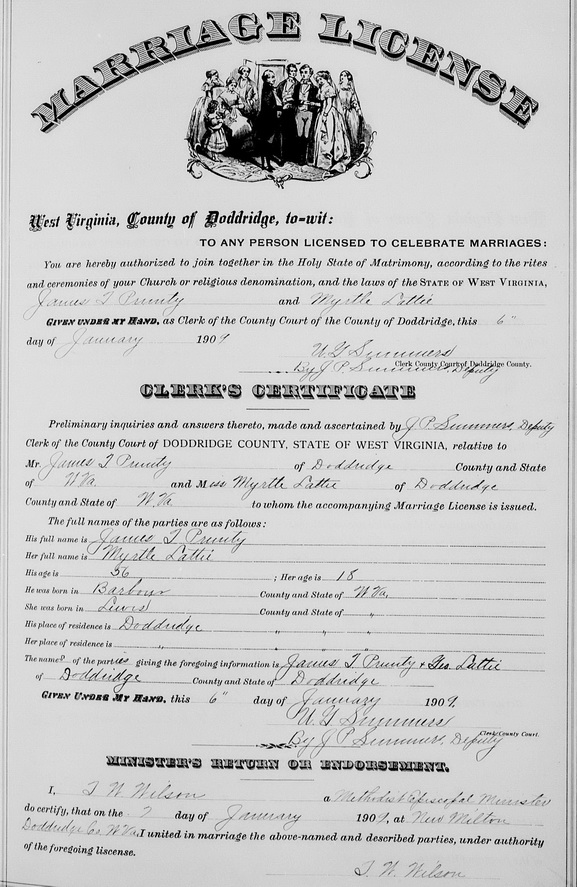 MARRIAGE LICENSE
West Virginia, County of Doddridge, to-wit:
TO ANY PERSON LICENSED TO CELEBRATE MARRIAGES:
You are hereby authorized to join together in the Holy State of Matrimony, according to the rites
and ceremonies of your Church or religious denomination, and the laws of the STATE OF WEST VIRGINIA,
James T Prunty and Myrtle Lattie
GIVEN UNDER MY HAND, as Clerk of the County Court of the County of Doddridge, this 6"
day of January 1909
W G Summers
Clerk County Court of Doddridge County.
By J P Summers, Deputy
CLERK'S CERTIFICATE
Preliminary inquiries and answers thereto, made and ascertained by J P Summers, Deputy
Clerk of the County Court of DODDRIDGE COUNTY, STATE OF WEST VIRGINIA, relative to
Mr. James T Prunty of Doddridge County and State
of W Va and Miss Myrtle Lattie of Doddridge
County and State of W. Va to whom the accompanying Marriage License is issued.
The full names of the parties are as follows:
His full name is James T Prunty
Her full name is Myrtle Lattie
His age is 56 ; Her age is 18
He was born in Barbour County and State of W Va,
She was born in Lewis County and State of "
His place of residence is Doddridge " " "
Her place of residence is " " "
The names of the parties giving the foregoing information is James T Prunty & Geo. Lattie
of Doddridge County and State of Doddridge
GIVEN UNDER MY HAND, this 6" day of January 1909.
W G Summers
Clerk County Court.
By J P Summers, Deputy
MINISTER'S RETURN OR ENDORSEMENT.
I, T W Wilson a Methodist Episcopal Minister
do certify, that on the 7 day of January 1909, at New Milton
Doddridge Co W Va. I united in marriage the above-named and described parties, under authority
of the foregoing liscense.
T. W. Wilson